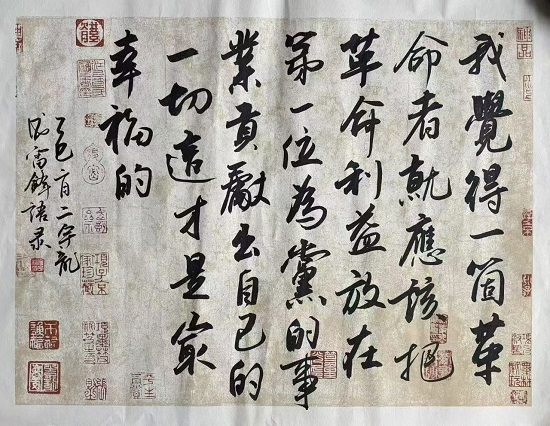 我覺得一箇革
命者就應該把
革命利益放在
第一位為黨的事
業貢獻出自己的
一切這才是最
幸福的
乙巳
雷鋒語录